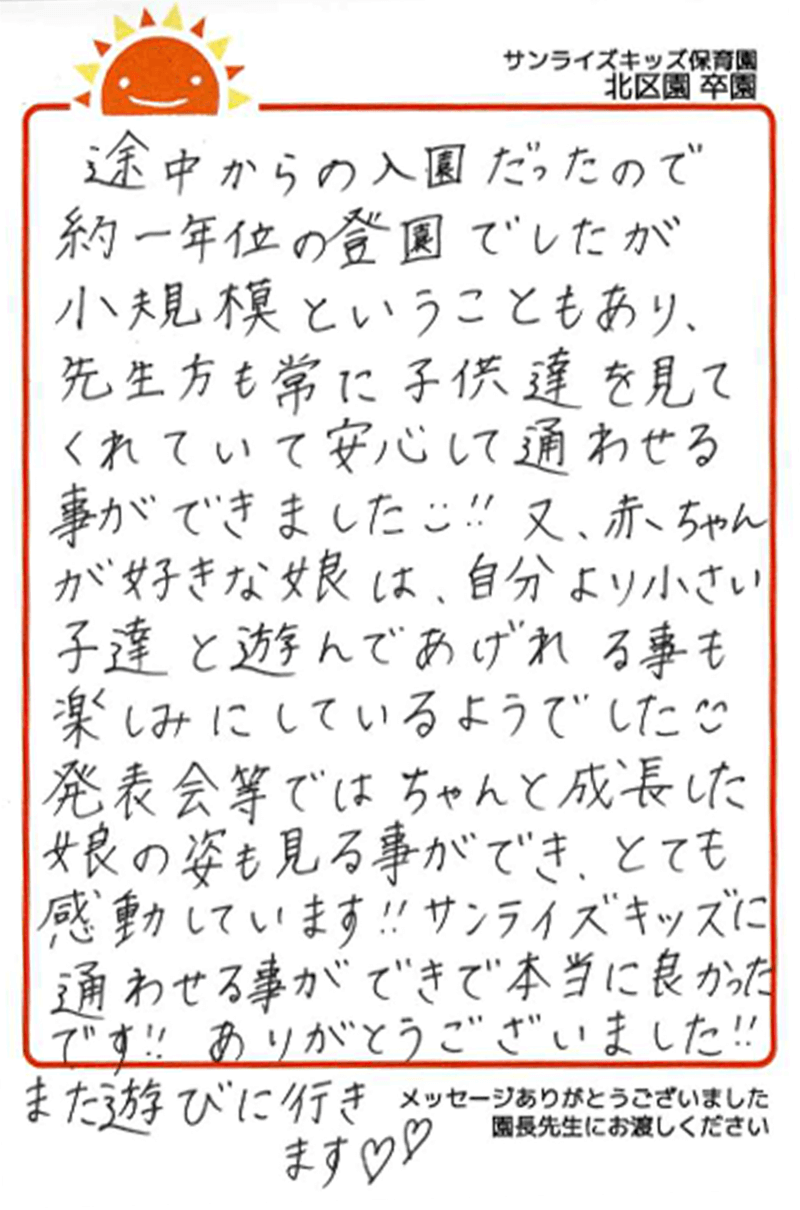 サンライズキッズ保育園
北区園 卒園
途中からの入園だったので
約一年位の登園でしたが
小規模ということもあり、
先生方も常に子供達を見て
くれていて安心して通わせる
事ができました!! 又、赤ちゃん
が好きな娘は、自分より小さい
子達と遊んであげれる事も
楽しみにしているようでした
発表会等ではちゃんと成長した
娘の姿も見る事ができ、とても
感動しています!! サンライズキッズに
通わせる事ができて本当に良かった
です!! ありがとうございました!!
また遊びに行き
ます♡♡
メッセージありがとうございました
園長先生にお渡しください